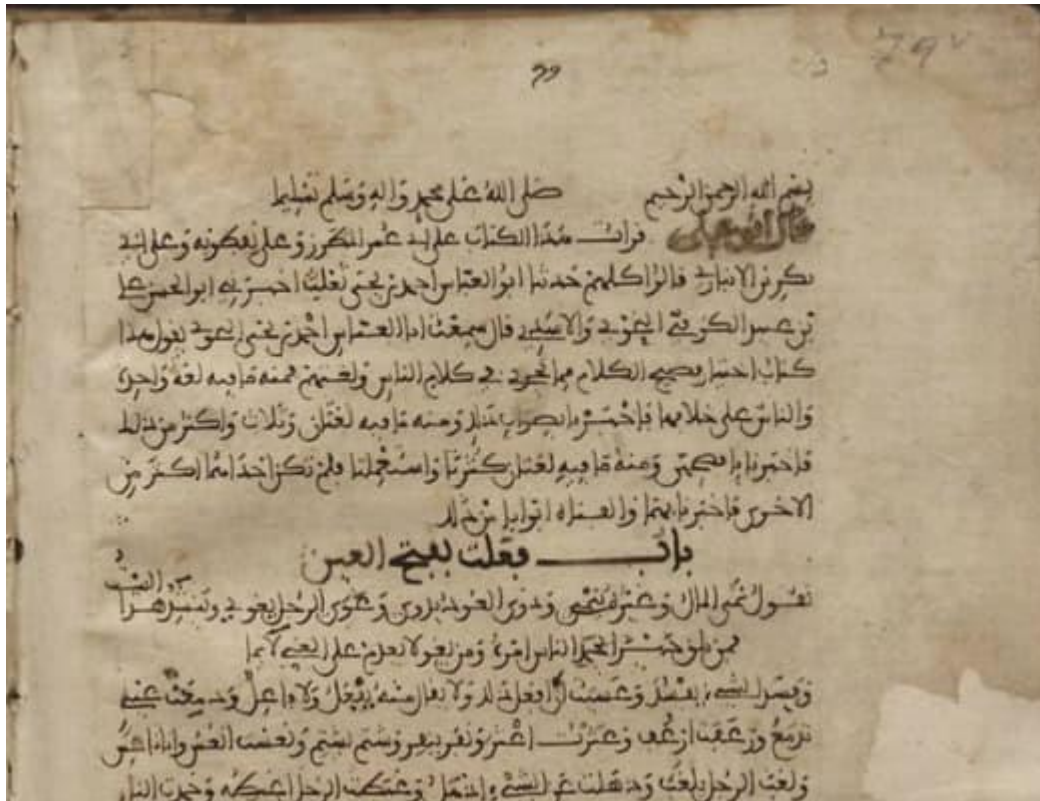 79v
79
بسم الله الرحمن الرحيم صلى الله على محمد واله وسلم تسليما
قرات هذا الكتاب على ابي عمر المطرز وعلى نفطويه وعلى ابي
بكر بن الانباري قالوا كلهم حدثنا ابو العباس احمد بن يحيى ثعلب اخبرني ابو الحسن علي
قال سمعت ابا العباس احمد بن يحيى يقول هذا
كتاب اختيار فصيح الكلام مما يجري في كلام الناس ولغتهم فمنه ما فيه لغة واحدة
والناس على خلافها فاخبرنا بصواب ذلك ومنه ما فيه لغتان وثلاث واكثر من ذلك
فاخبرنا بافصحهن ومنه ما فيه لغتان كثرتا واستعملتا فلم تكن احداهما اكثر من
الاخرى فاخبرنا بهما والفناه ابوابا من ذلك
باب فعلت بفتح العين
تقول نمى المال وغيره ينمي وذوى العود يذوي وغوى الرجل يغوي وينشد هذا البيت
فمن يلق خيرا يحمد الناس امره ومن يغو لا يعدم على الغي لائما
وفسد الشيء يفسد وعسيت ان افعل ذلك ولا يقال منه يفعل ولا فاعل ودمعت عيني
تدمع ورعفت ارعف وعثرت اعثر ونفر ينفر وشتم يشتم ونعست انعس وانا ناعس
ولغب الرجل يلغب وذهلت عن الشيء اذهل وغبطت الرجل اغبطه وخمدت النار